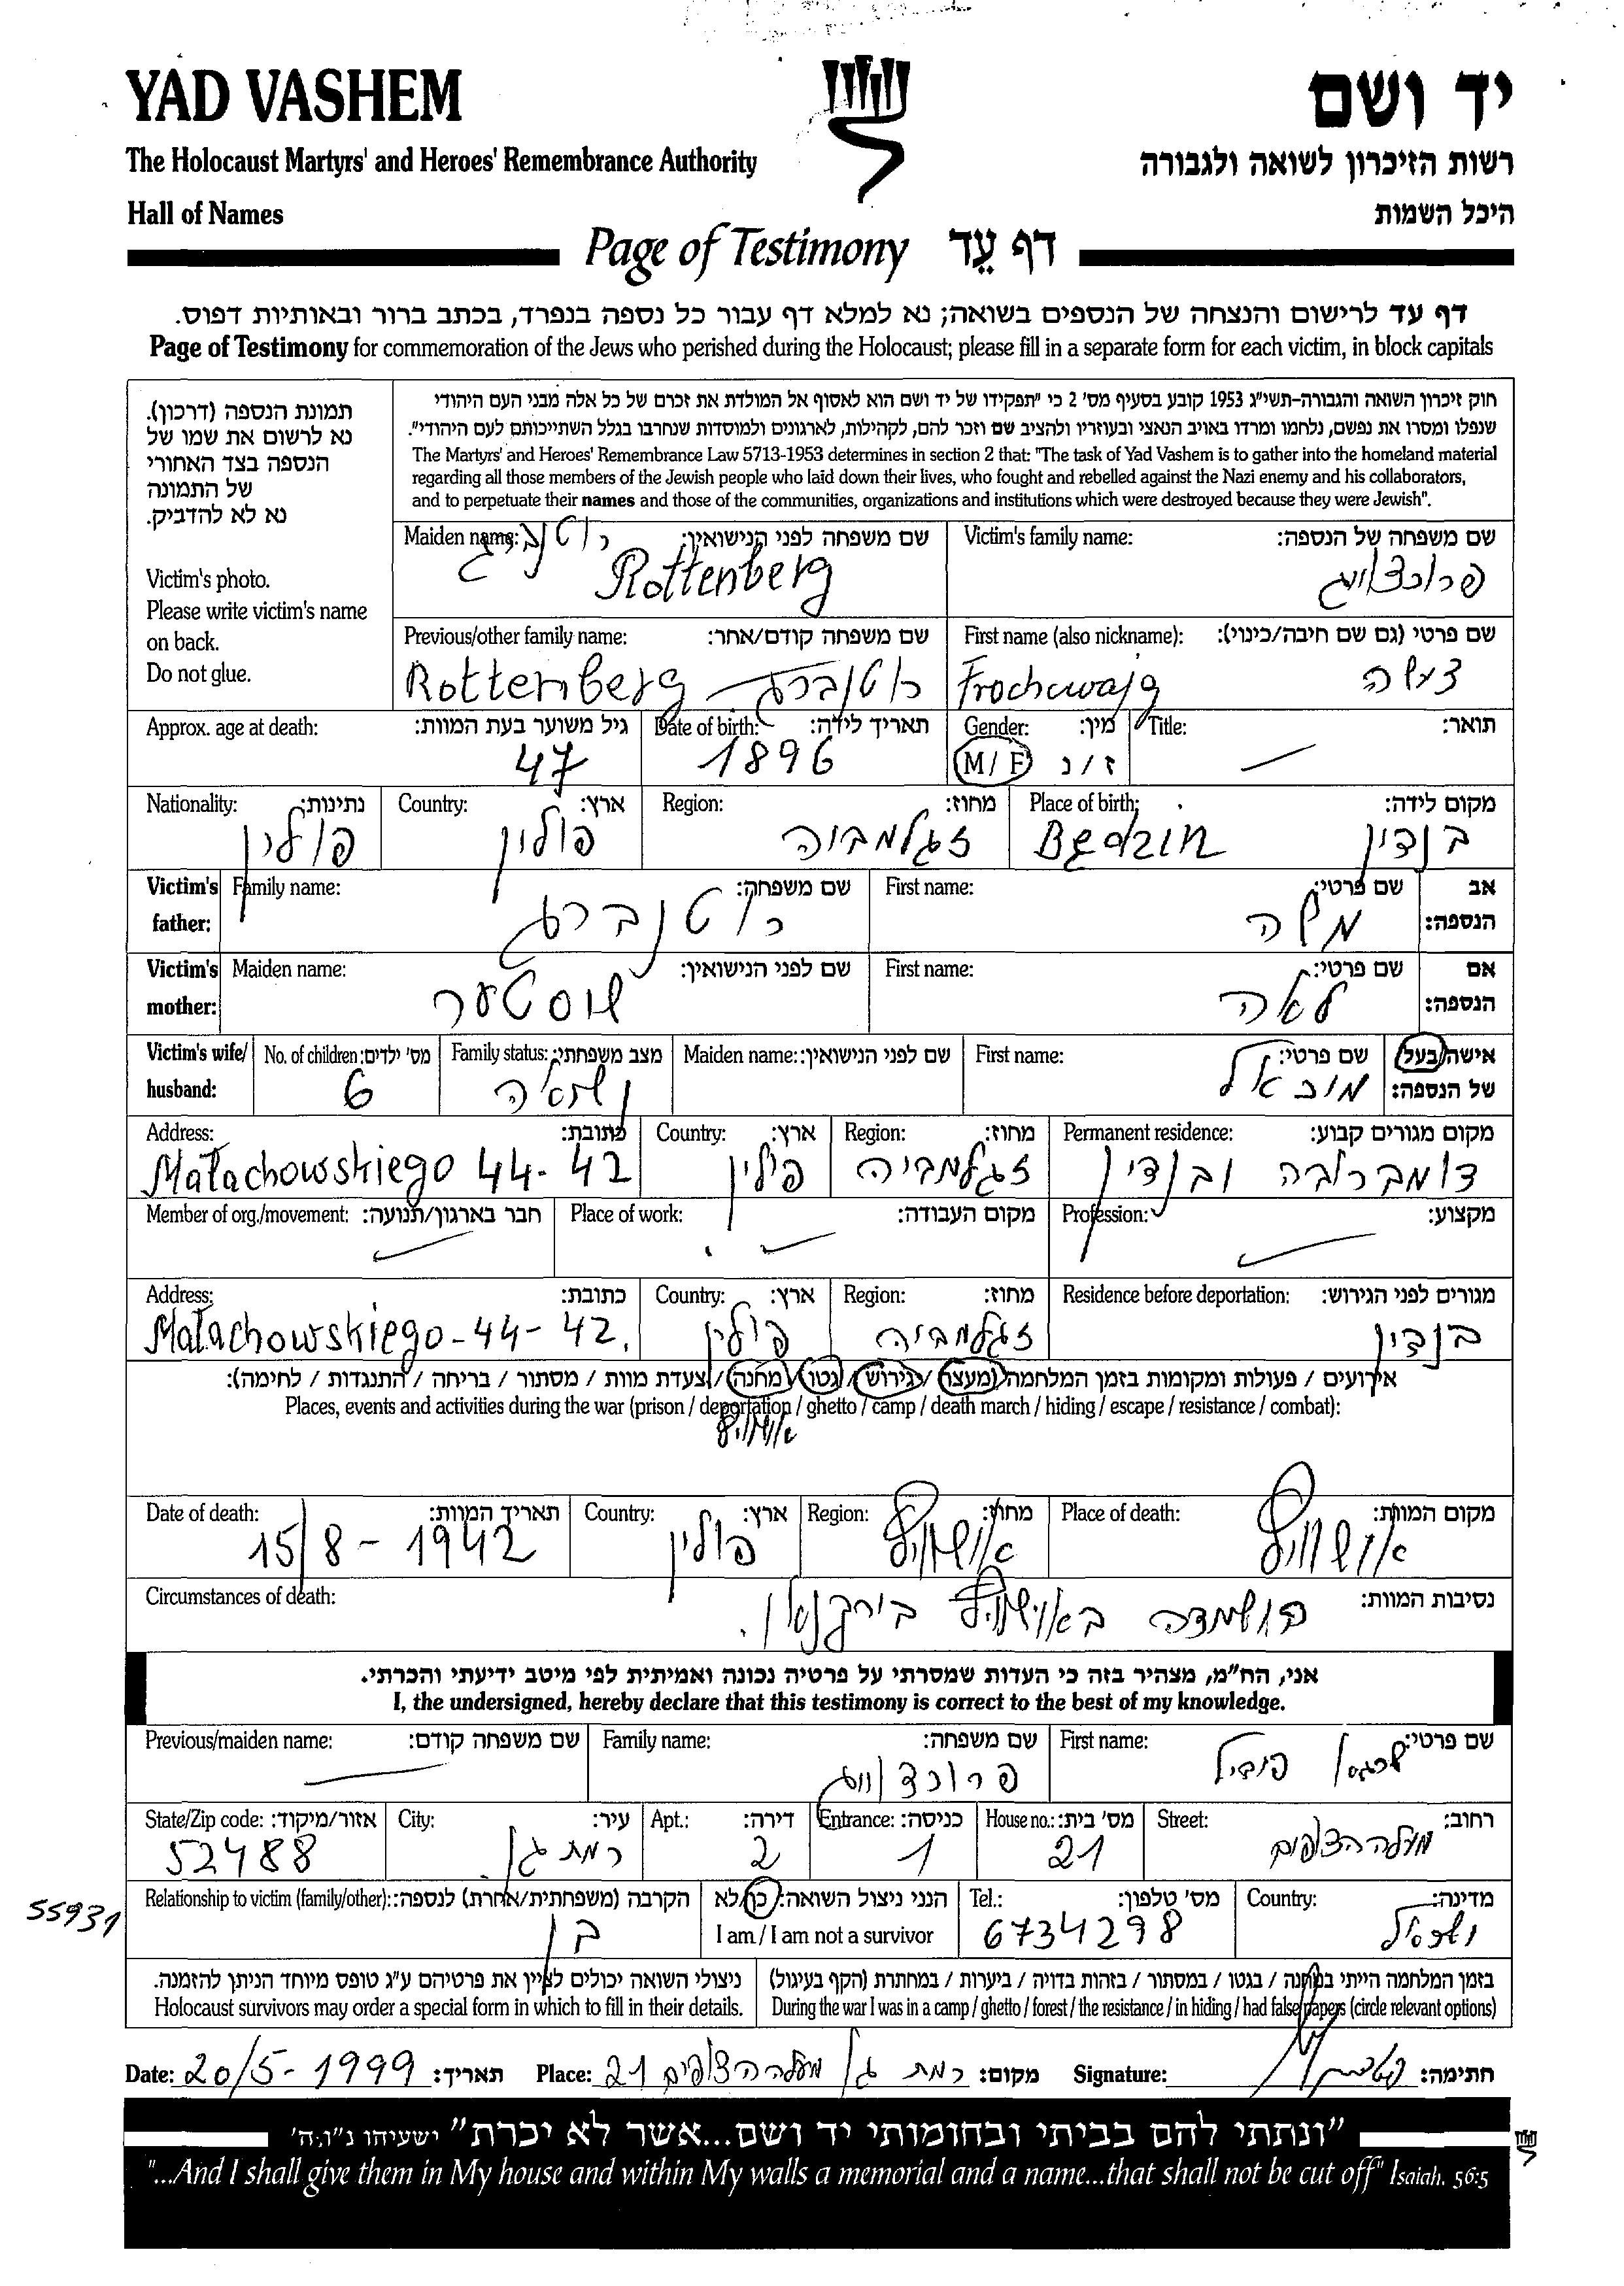 YAD VASHEM
יד ושם
The Holocaust Martyrs' and Heroes' Remembrance Authority
רשות הזיכרון לשואה ולגבורה
Hall of Names
היכל השמות
Page of Testimony דף עֵד
דף עד לרישום והנצחה של הנספים בשואה; נא למלא דף עבור כל נספה בנפרד, בכתב ברור ובאותיות דפוס.
Page of Testimony for commemoration of the Jews who perished during the Holocaust; please fill in a separate form for each victim, in block capitals
תמונת הנספה (דרכון).
נא לרשום את שמו של
הנספה בצד האחורי
של התמונה
נא לא להדביק.
Victim's photo.
Please write victim's name
on back.
Do not glue.
חוק זיכרון השואה והגבורה-תשי"ג 1953 קובע בסעיף מס' 2 כי "תפקידו של יד ושם הוא לאסוף אל המולדת את זכרם של כל אלה מבני העם היהודי
שנפלו ומסרו את נפשם, נלחמו ומרדו באויב הנאצי ובעוזריו ולהציב שם וזכר להם, לקהילות, לארגונים ולמוסדות שנחרבו בגלל השתייכותם לעם היהודי".
The Martyrs' and Heroes' Remembrance Law 5713-1953 determines in section 2 that: "The task of Yad Vashem is to gather into the homeland material
regarding all those members of the Jewish people who laid down their lives, who fought and rebelled against the Nazi enemy and his collaborators,
and to perpetuate their names and those of the communities, organizations and institutions which were destroyed because they were Jewish".
Victim's family name: שם משפחה של הנספה:
פרוכצווייג
Maiden name: שם משפחה לפני הנישואין:
רוטנברג
Rottenberg
First name (also nickname): שם פרטי (גם שם חיבה/כינוי):
Frochcwajg
Previous/other family name: שם משפחה קודם/אחר:
Rottenberg רוטנברג
Title: תואר:
Gender: מין:
M/F ז/נ
Date of birth: תאריך לידה:
1896
Approx. age at death: גיל משוער בעת המוות:
47
Place of birth: מקום לידה:
Będzin בנדין
Region: מחוז:
זגלמביה
Country: ארץ:
פולין
Nationality: נתינות:
פולין
Victim's father: אב הנספה:
First name: שם פרטי:
משה
Family name: שם משפחה:
רוטנברג
Victim's mother: אם הנספה:
First name: שם פרטי:
לאה
Maiden name: שם לפני הנישואין:
שוסטער
Victim's wife/husband: אישה/בעל של הנספה:
First name: שם פרטי:
מיכאל
Maiden name: שם לפני הנישואין:
Family status: מצב משפחתי:
נשואה
No. of children: מס' ילדים:
6
Permanent residence: מקום מגורים קבוע:
ובנדין
Region: מחוז:
זגלמביה
Country: ארץ:
פולין
Address: כתובת:
Małachowskiego 44-42
Profession: מקצוע:
Place of work: מקום העבודה:
Member of org./movement: חבר בארגון/תנועה:
Residence before deportation: מגורים לפני הגירוש:
בנדין
Region: מחוז:
זגלמביה
Country: ארץ:
פולין
Address: כתובת:
Małachowskiego-44-42.
אירועים / פעולות ומקומות בזמן המלחמה (מעצר / גירוש / גטו / מחנה / צעדת מוות / מסתור / בריחה / התנגדות / לחימה):
Places, events and activities during the war (prison / deportation / ghetto / camp / death march / hiding / escape / resistance / combat):
אושוויץ
Place of death: מקום המוות:
אושוויץ
Region: מחוז:
אושוויץ
Country: ארץ:
פולין
Date of death: תאריך המוות:
15/8-1942
Circumstances of death: נסיבות המוות:
הושמדה באושוויץ בירקנאו.
אני, הח"מ, מצהיר בזה כי העדות שמסרתי על פרטיה נכונה ואמיתית לפי מיטב ידיעתי והכרתי.
I, the undersigned, hereby declare that this testimony is correct to the best of my knowledge.
First name: שם פרטי:
Family name: שם משפחה:
פרוכצווייג
Previous/maiden name: שם משפחה קודם:
Street: רחוב:
מעלה הצופים
House no.: מס' בית:
21
Entrance: כניסה:
1
Apt.: דירה:
2
City: עיר:
רמת גן
State/Zip code: אזור/מיקוד:
52488
Country: מדינה:
ישראל
Tel.: מס' טלפון:
6734298
הנני ניצול השואה: כן/לא
I am / I am not a survivor
Relationship to victim (family/other): הקרבה (משפחתית/אחרת) לנספה:
בן
55931
בזמן המלחמה הייתי במחנה / בגטו / במסתור / בזהות בדויה / ביערות / במחתרת (הקף בעיגול)
During the war I was in a camp / ghetto / forest / the resistance / in hiding / had false papers (circle relevant options)
ניצולי השואה יכולים לציין את פרטיהם ע"ג טופס מיוחד הניתן להזמנה.
Holocaust survivors may order a special form in which to fill in their details.
Date: 20/5-1999 תאריך: Place: רמת גן מעלה הצופים 21 מקום: Signature: חתימה:
"ונתתי להם בביתי ובחומותי יד ושם...אשר לא יכרת" ישעיהו נ"ו,ה'
"...And I shall give them in My house and within My walls a memorial and a name...that shall not be cut off" Isaiah. 56:5